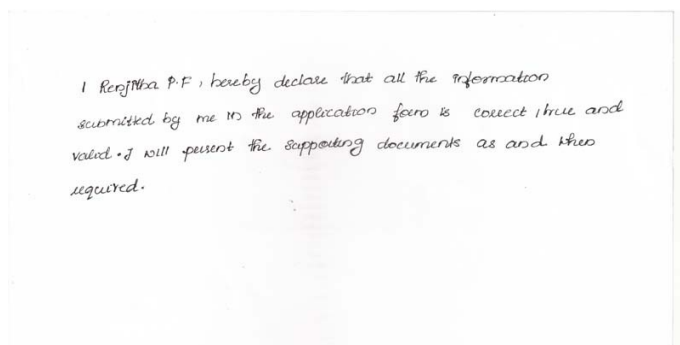 I Renjitha P.F, hereby declare that all the information
submitted by me in the application form is correct, true and
valid. I will present the supporting documents as and when
required.